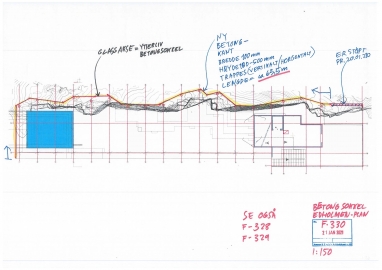 GLASS AKSE = YTTERLIV
BETONGSOKKEL
NY
BETONG-
KANT
BREDDE 100 mm
HØYDE 100-500 mm
TRAPPES (VERTIKALT/HORISONTALT)
LENGDE = ca 63,5 m
ER STØPT
PR. 20.01.20
SE OGSÅ
F-328
F-329
BETONG SOKKEL
EDHOLMEN - PLAN
F-330
21 JAN 2020
1:150